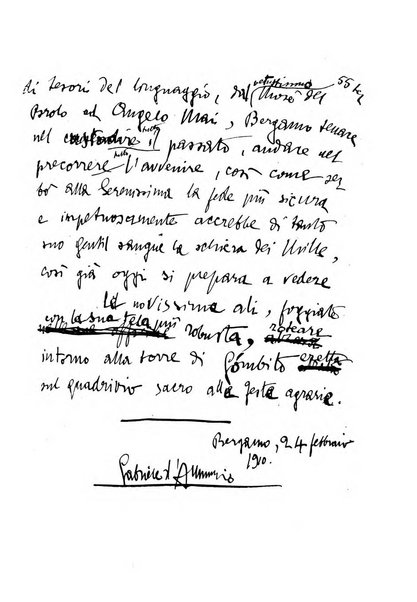 di tesori del linguaggio, dal vetustissimo Mosè del
Brolo ad Angelo Mai, Bergamo tenace
nel custodire tutto il passato, audace nel
precorrere tutto l'avvenire, così come ser
bò alla Serenissima la fede più sicura
e impetuosamente accrebbe di tanto
suo gentil sangue la schiera dei Mille,
così già oggi si prepara a vedere
le novissime ali, foggiate
con la sua tela più robusta, roteare
intorno alla torre di Gómbito eretta
sul quadrivio sacro alla gesta agraria.
Bergamo, 24 febbraio
1910.
Gabriele d'Annunzio